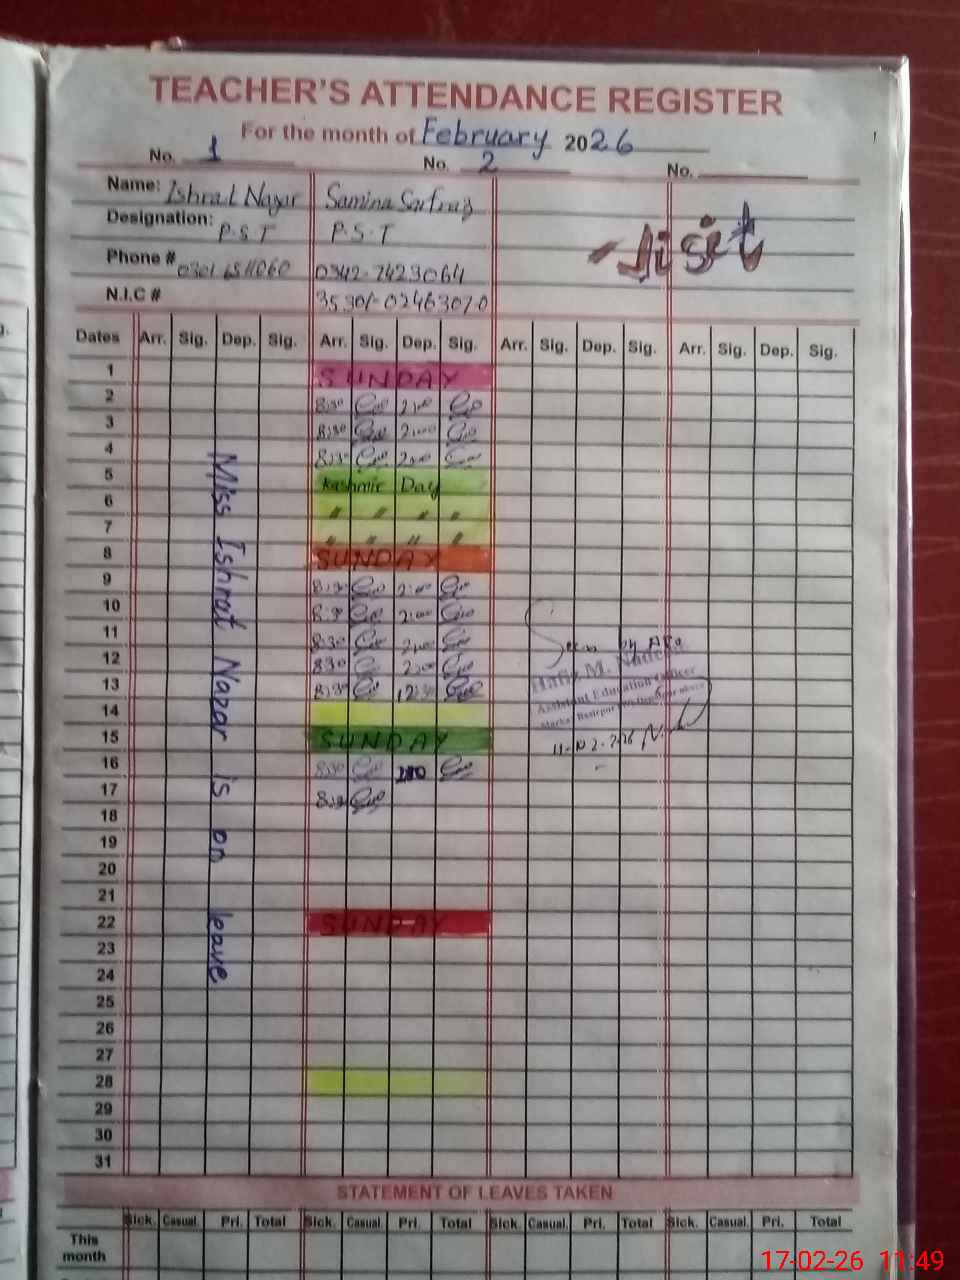 TEACHER'S ATTENDANCE REGISTER
For the month of February 2026
No. 1 No. 2 No.
Name: Ishrat Nazar Samina Sarfraz
Designation: P.S.T P.S.T
Phone # 0342-7423064
N.I.C #
Visit
Dates Arr. Sig. Dep. Sig. Arr. Sig. Dep. Sig. Arr. Sig. Dep. Sig. Arr. Sig. Dep. Sig.
1 SUNDAY
2 8:30 2:00
3 8:30 2:00
4 8:30 2:00
5 Kashmir Day
6 " " " "
7 " " " "
8 SUNDAY
9 8:30 2:00
10 8:30 2:00
11 8:30 2:00
12 8:30 2:00
13 8:30 12:30
14
15 SUNDAY
16 8:30 2:00
17 8:30
18
19
20
21
22 SUNDAY
23
24
25
26
27
28
29
30
31
Miss Ishrat Nazar is on leave
Seen by AEO
Hafiz M. Nadeem
Assistant Education Officer
11-02-2026
STATEMENT OF LEAVES TAKEN
Sick. Casual. Pri. Total Sick. Casual. Pri. Total Sick. Casual. Pri. Total Sick. Casual. Pri. Total
This month
17-02-26 11:49